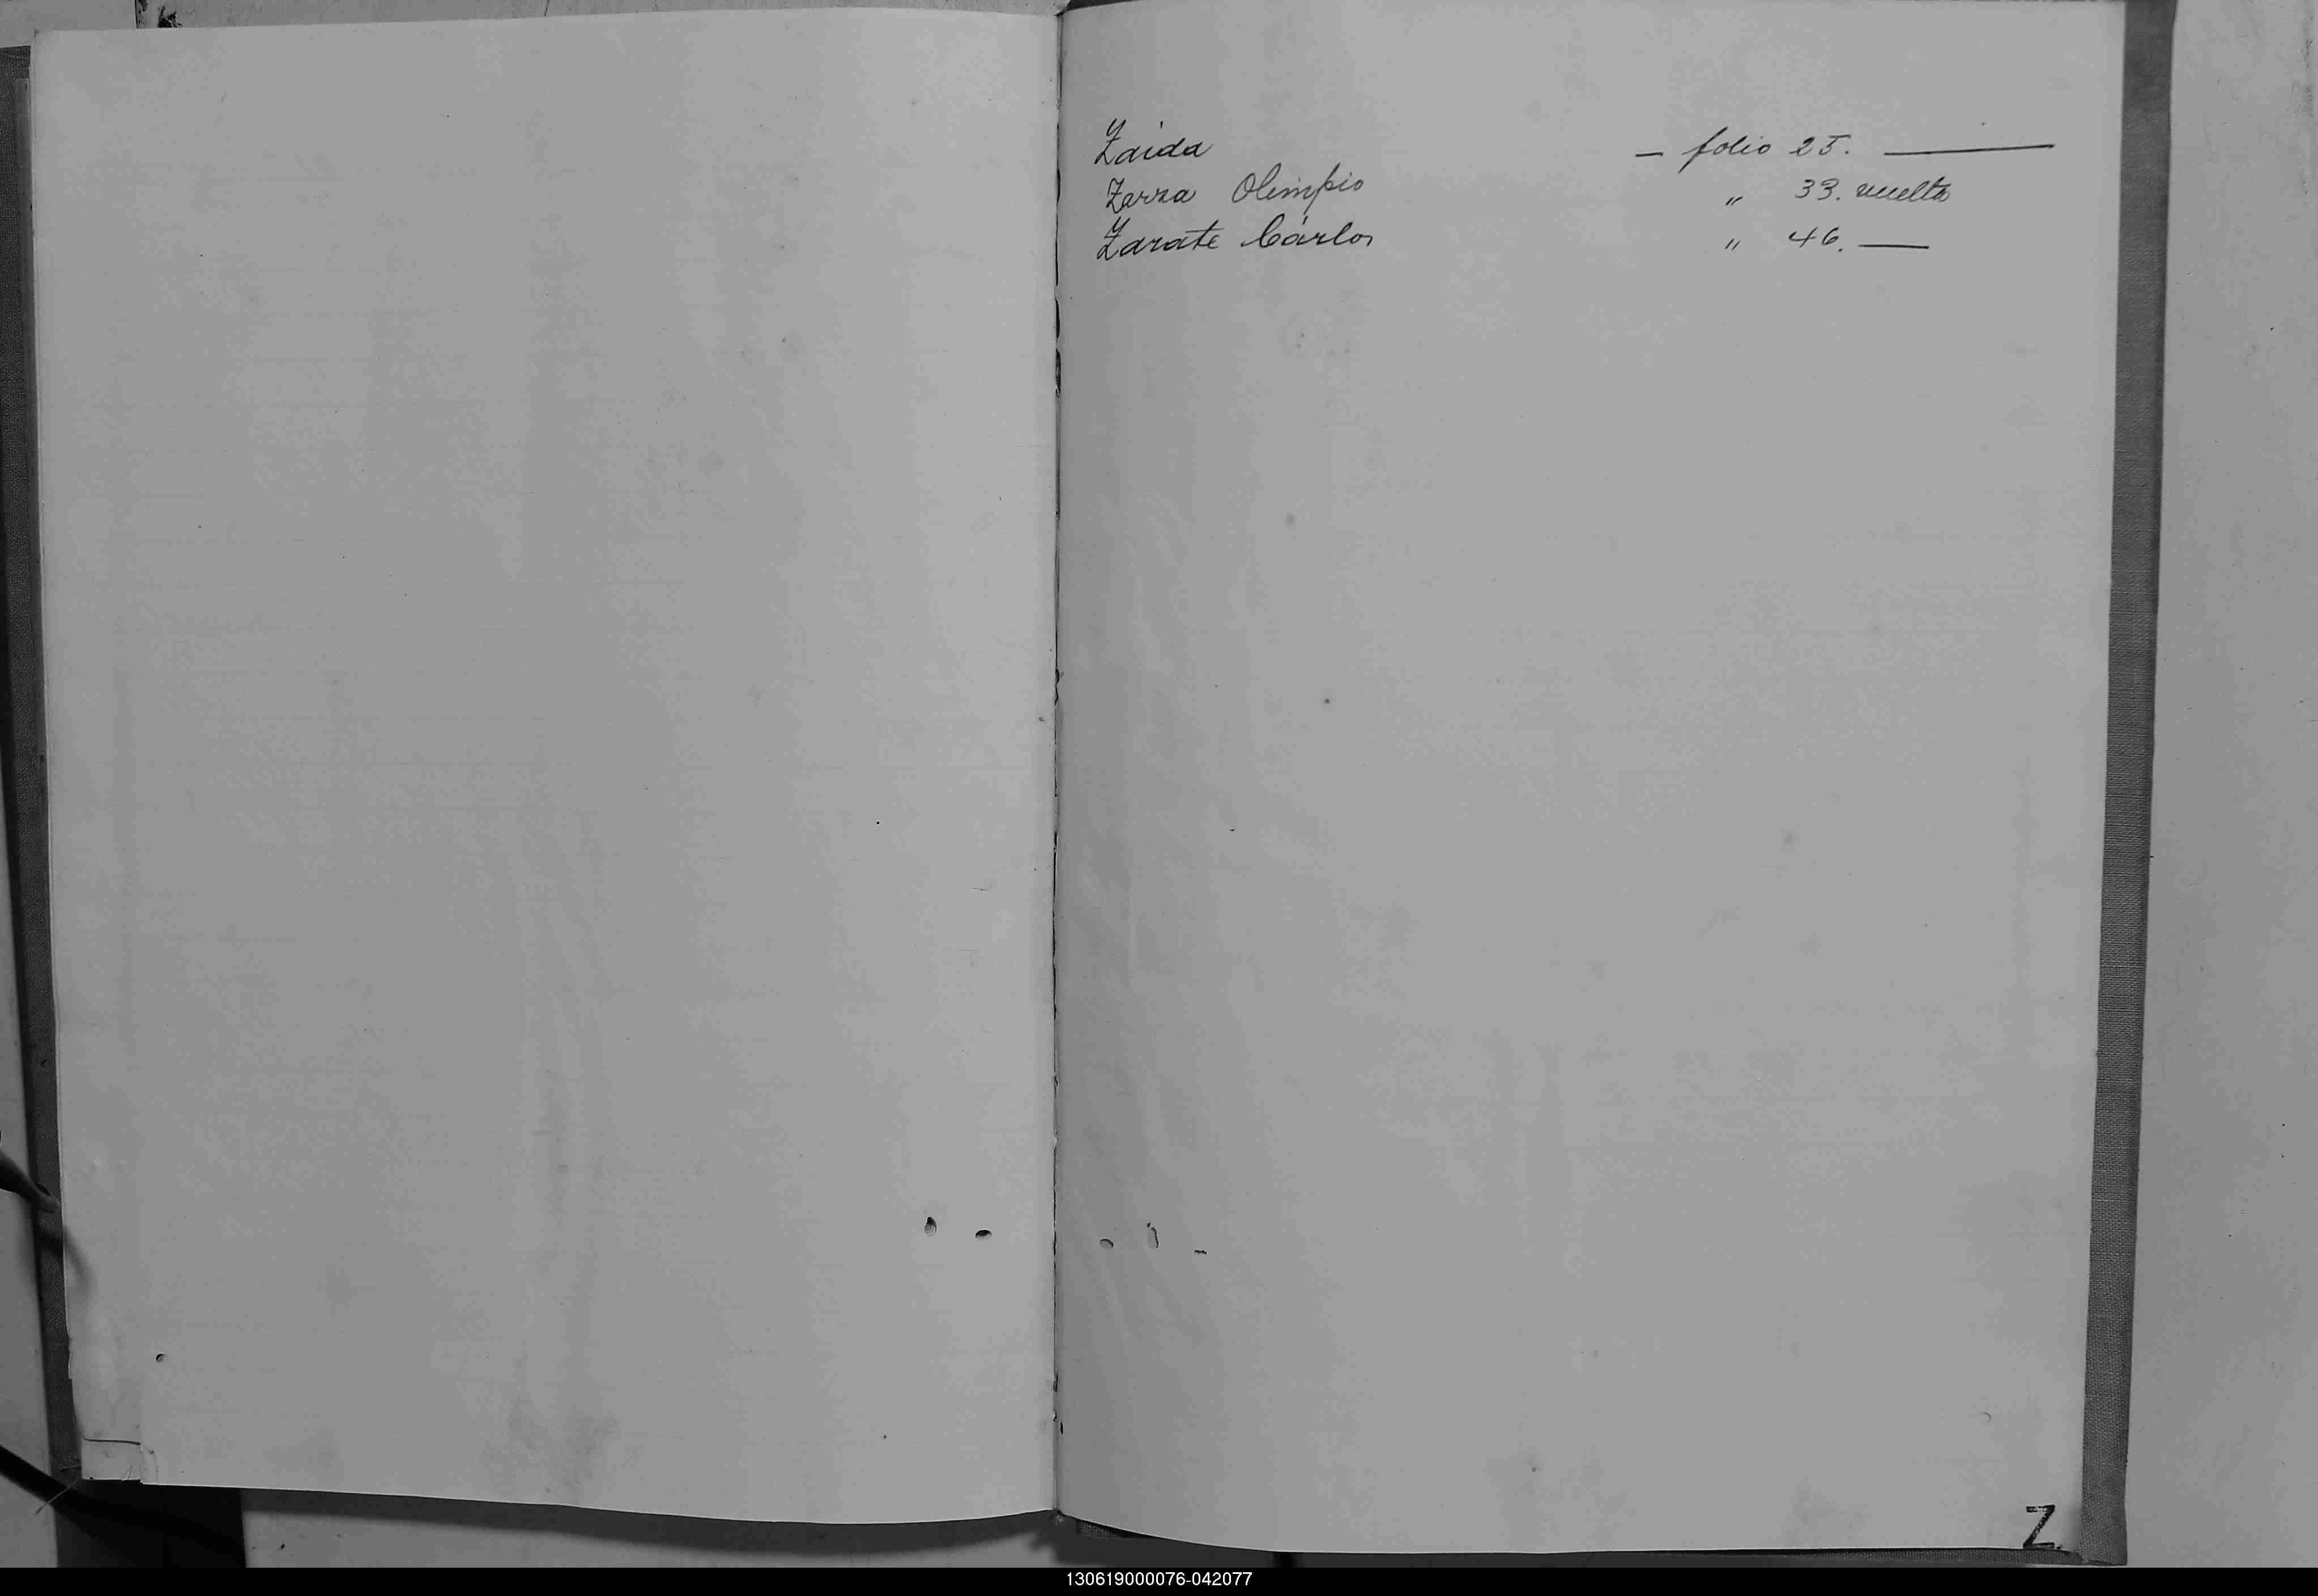 Zaida — folio 25. —
Zarza Olimpio " 33. vuelta
Zarate Cárlos " 46. —
Z
130619000076-042077